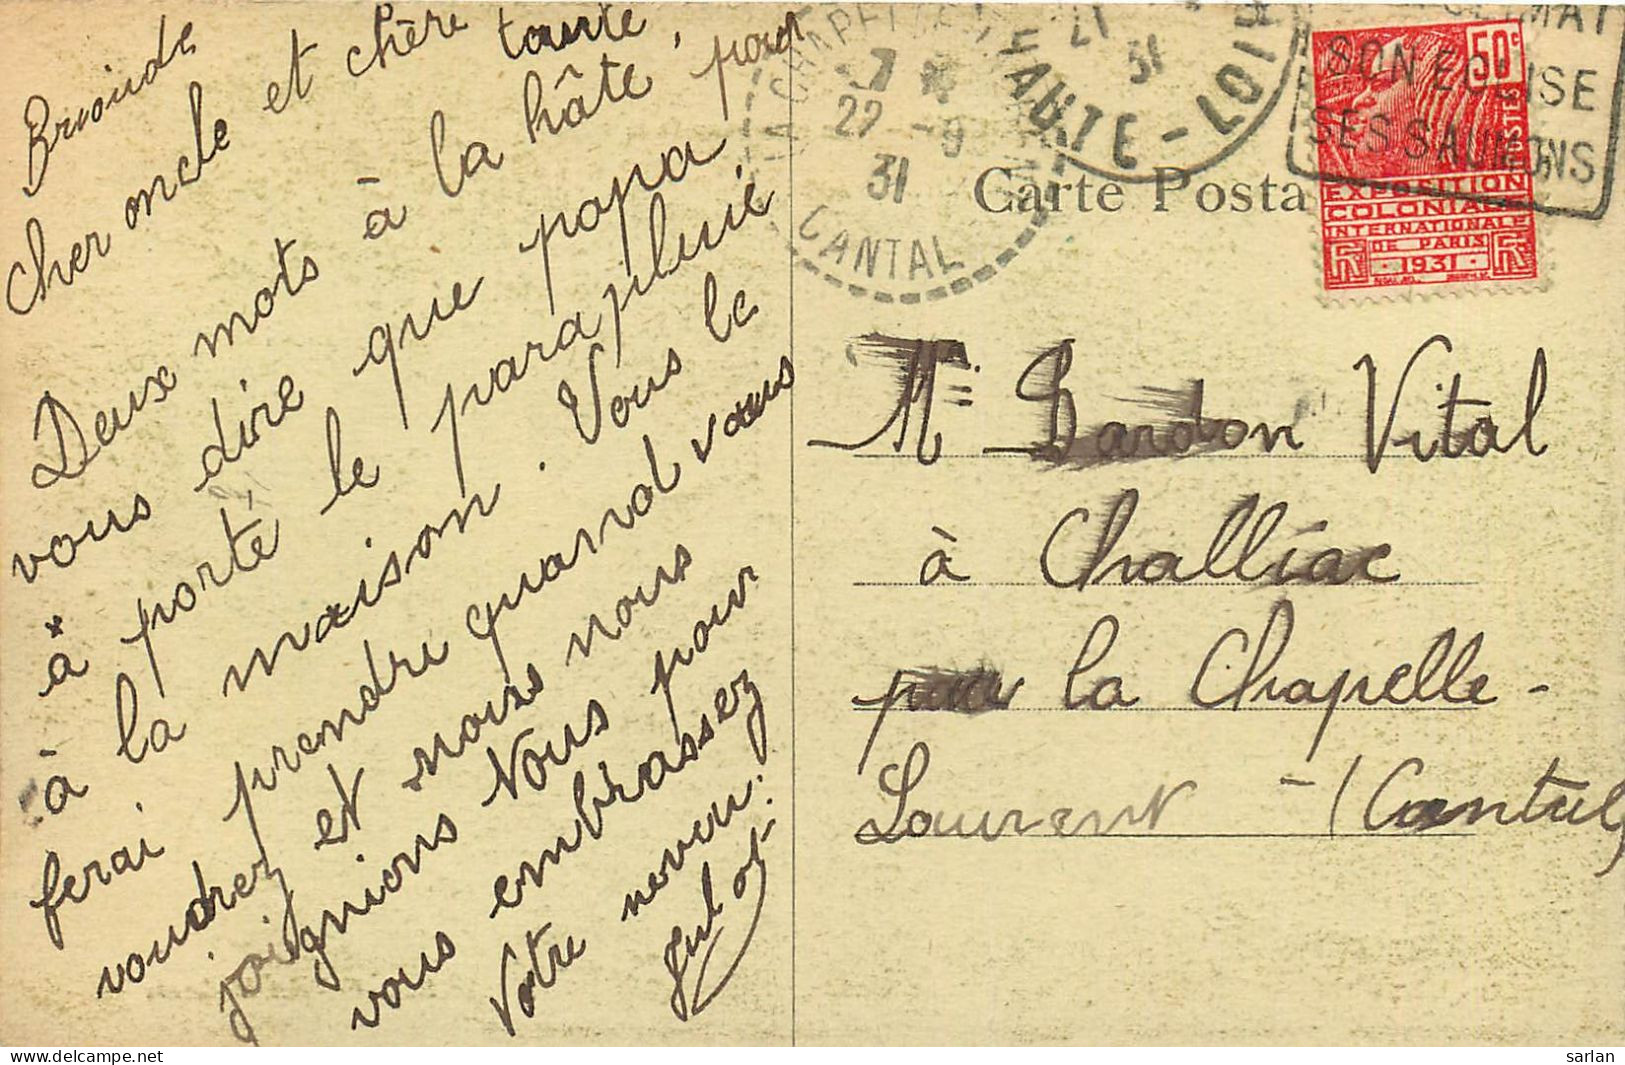 Brioude
Cher oncle et chère tante
Deux mots à la hâte, pour
vous dire que papa
à porté le parapluie
à la maison. Vous le
ferai prendre quand vous
voudrez et nous nous
joignions nous pour
vous embrassez
Votre neveu.
LA CHAPELLE
22 -9
31
CANTAL
21
31
HAUTE-LOIRE
CLIMAT
SON EGLISE
SES SAUMONS
50c
POSTES
EXPOSITION
COLONIALE
INTERNATIONALE
DE PARIS
RF 1931 RF
Carte Posta
Mr. Dardon Vital
à Challiac
par la Chapelle-
Laurent - (Cantal)
sarlan